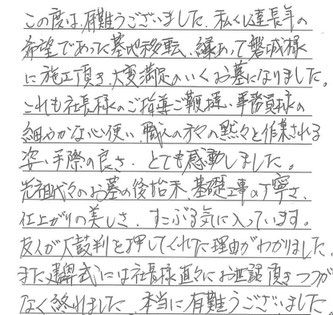 この度は、有難うございました。私くし達長年の
希望であった墓地移転、縁あって磐城様
に施工頂き、大変満足のいくお墓になりました。
これも社長様のご指導ご鞭撻、事務員様の
細やかな心使い、職人の方々の黙々と作業される
姿、手際の良さ、とても感動しました。
先祖代々のお墓の後始末、基礎工事の丁寧さ、
仕上がりの美しさ、すこぶる気に入っています。
友人が太鼓判を押してくれた理由がわかりました。
また建碑式には社長様直々にお世話頂きつつが
なく終れました。本当に有難うございました。